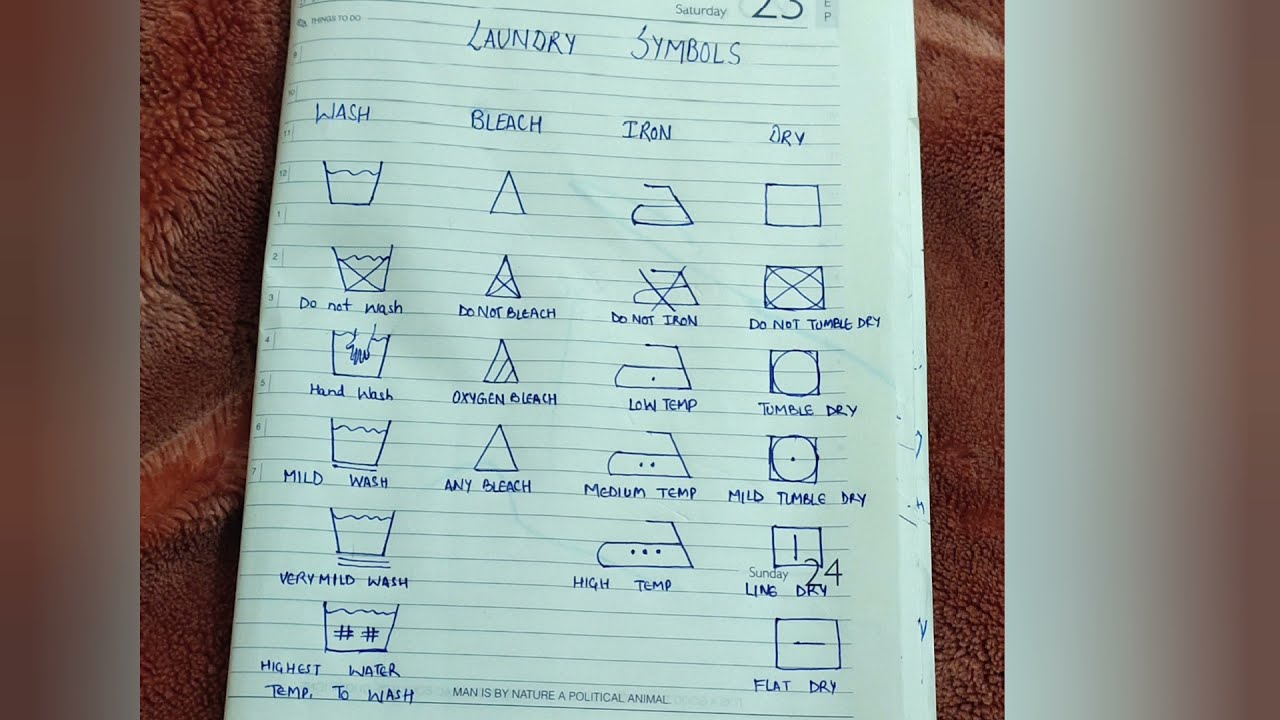 Saturday 23
SEP
THINGS TO DO
LAUNDRY SYMBOLS
WASH BLEACH IRON DRY
9
10
11
12
1
2
Do not wash DO NOT BLEACH DO NOT IRON DO NOT TUMBLE DRY
3
4
Hand Wash OXYGEN BLEACH LOW TEMP TUMBLE DRY
5
6
MILD WASH ANY BLEACH MEDIUM TEMP MILD TUMBLE DRY
7
Sunday 24
VERY MILD WASH HIGH TEMP LINE DRY
# #
HIGHEST WATER
TEMP. TO WASH
FLAT DRY
MAN IS BY NATURE A POLITICAL ANIMAL